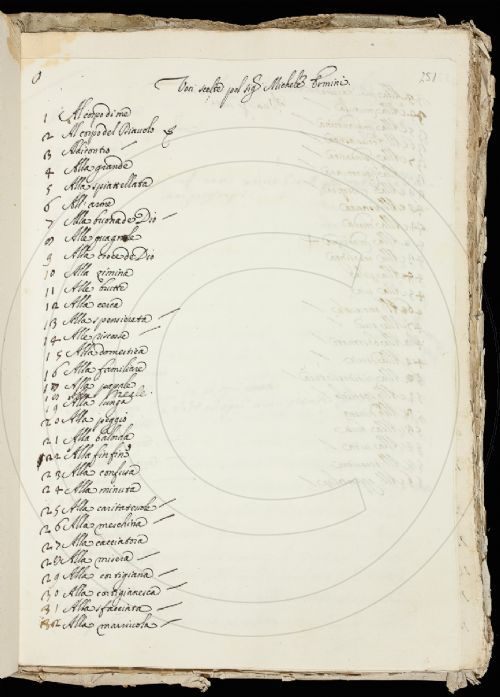 251
Voci scelte pel sigr Michele Ermini
1 Al corpo di me
2 Al corpo del Diavolo
3
4 Alla grande
5 Alla spiattellata
6 All' arme
7 Alla buona de Dio
8 Alle guagnele
9 Alla croce de Dio
10 Alla
11 Alle butte
12 Alla cieca
13 Alla spensierata
14 Alle riscosse
15 Alla domestica
16 Alla familiare
17 Alla papale
18 Alla
19 Alla lunga
20 Alla peggio
21 Alla balorda
22 Alla fin fine
23 Alla confusa
24 Alla minuta
25 Alla caritatevole
26 Alla meschina
27 Alla cacciatora
28 Alla misera
29 Alla cortigiana
30 Alla cortigianesca
31 Alla sfacciata
32 Alla mariola